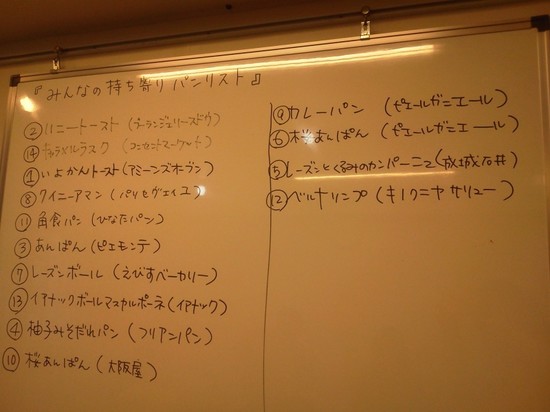 『みんなの持ち寄りパンリスト』
② ハニートースト (ブーランジェリースドウ)
⑭ キャラメルラスク (コンセントマーケット)
① いよかんトースト (アミーンズオーブン)
⑧ クイニーアマン (パリセヴェイユ)
⑪ 角食パン (ひなたパン)
③ あんぱん (ピエモンテ)
⑦ レーズンボール (えびすベーカリー)
⑬ イアナックボールマスカルポーネ (イアナック)
④ 柚子みそだれパン (フリアンパン)
⑩ 桜あんぱん (大阪屋)
⑨ カレーパン (ピエールガニエール)
⑥ 桜あんぱん (ピエールガニエール)
⑤ レーズンとくるみのカンパーニュ (成城石井)
⑫ ベルナリンプ (キノクニヤサリュー)